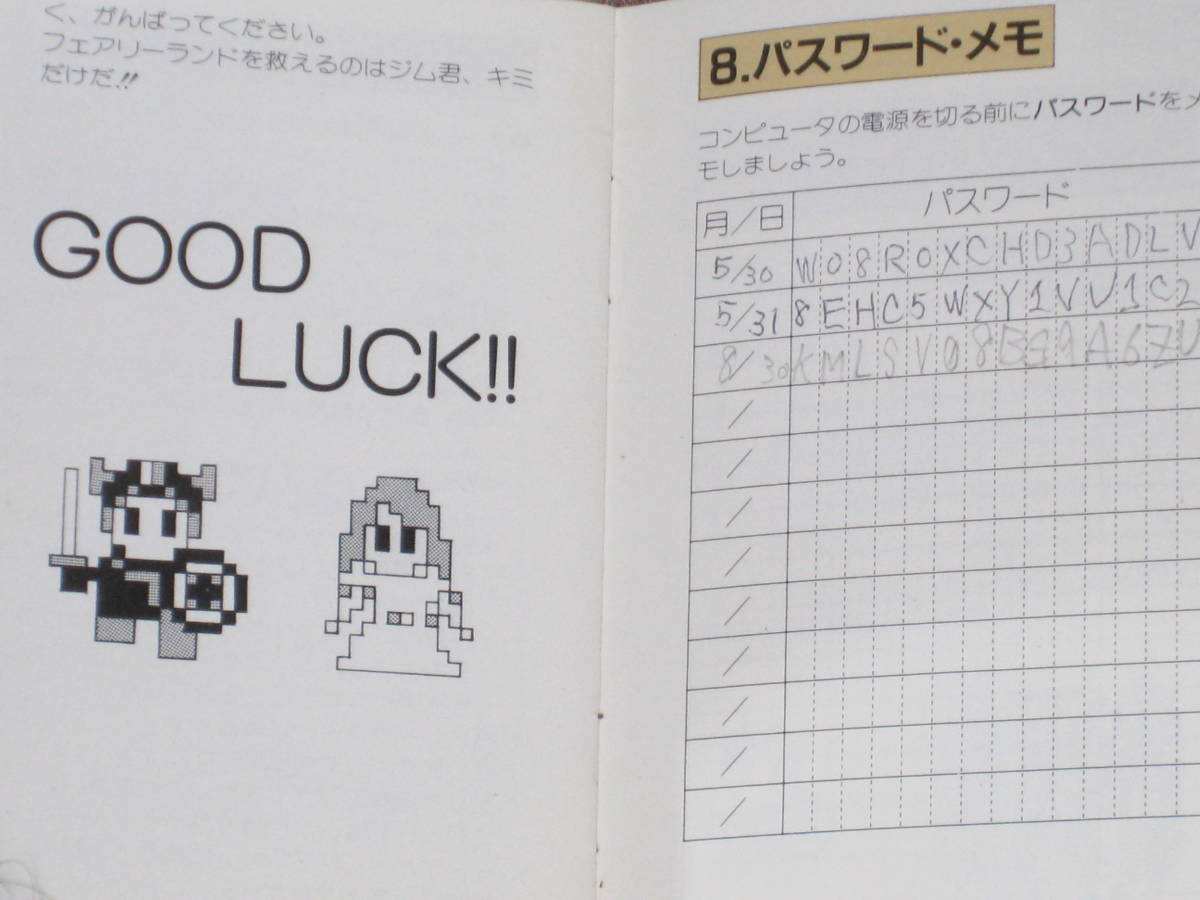 く、がんばってください。
フェアリーランドを救えるのはジム君、キミ
だけだ!!
GOOD
LUCK!!
8.パスワード・メモ
コンピュータの電源を切る前にパスワードをメ
モしましょう。
月/日 パスワード
5/30 W08R0XCHD3ADLV
5/31 8EHC5WXY1VV1C2
8/30 KMLSV08
/
/
/
/
/
/
/
/
/